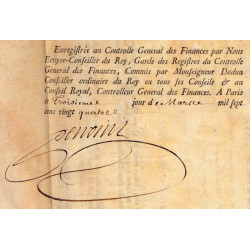 Enregistrée au Controlle General des Finances par Nous
Ecuyer-Conseiller du Roy, Garde des Registres du Controlle
General des Finances, Commis par Monseigneur Dodun
Conseiller ordinaire du Roy en tous ses Conseils & au
Conseil Royal, Controlleur General des Finances. A Paris
le troisieme jour de Mars mil sept
cens vingt quatre
Perrotin